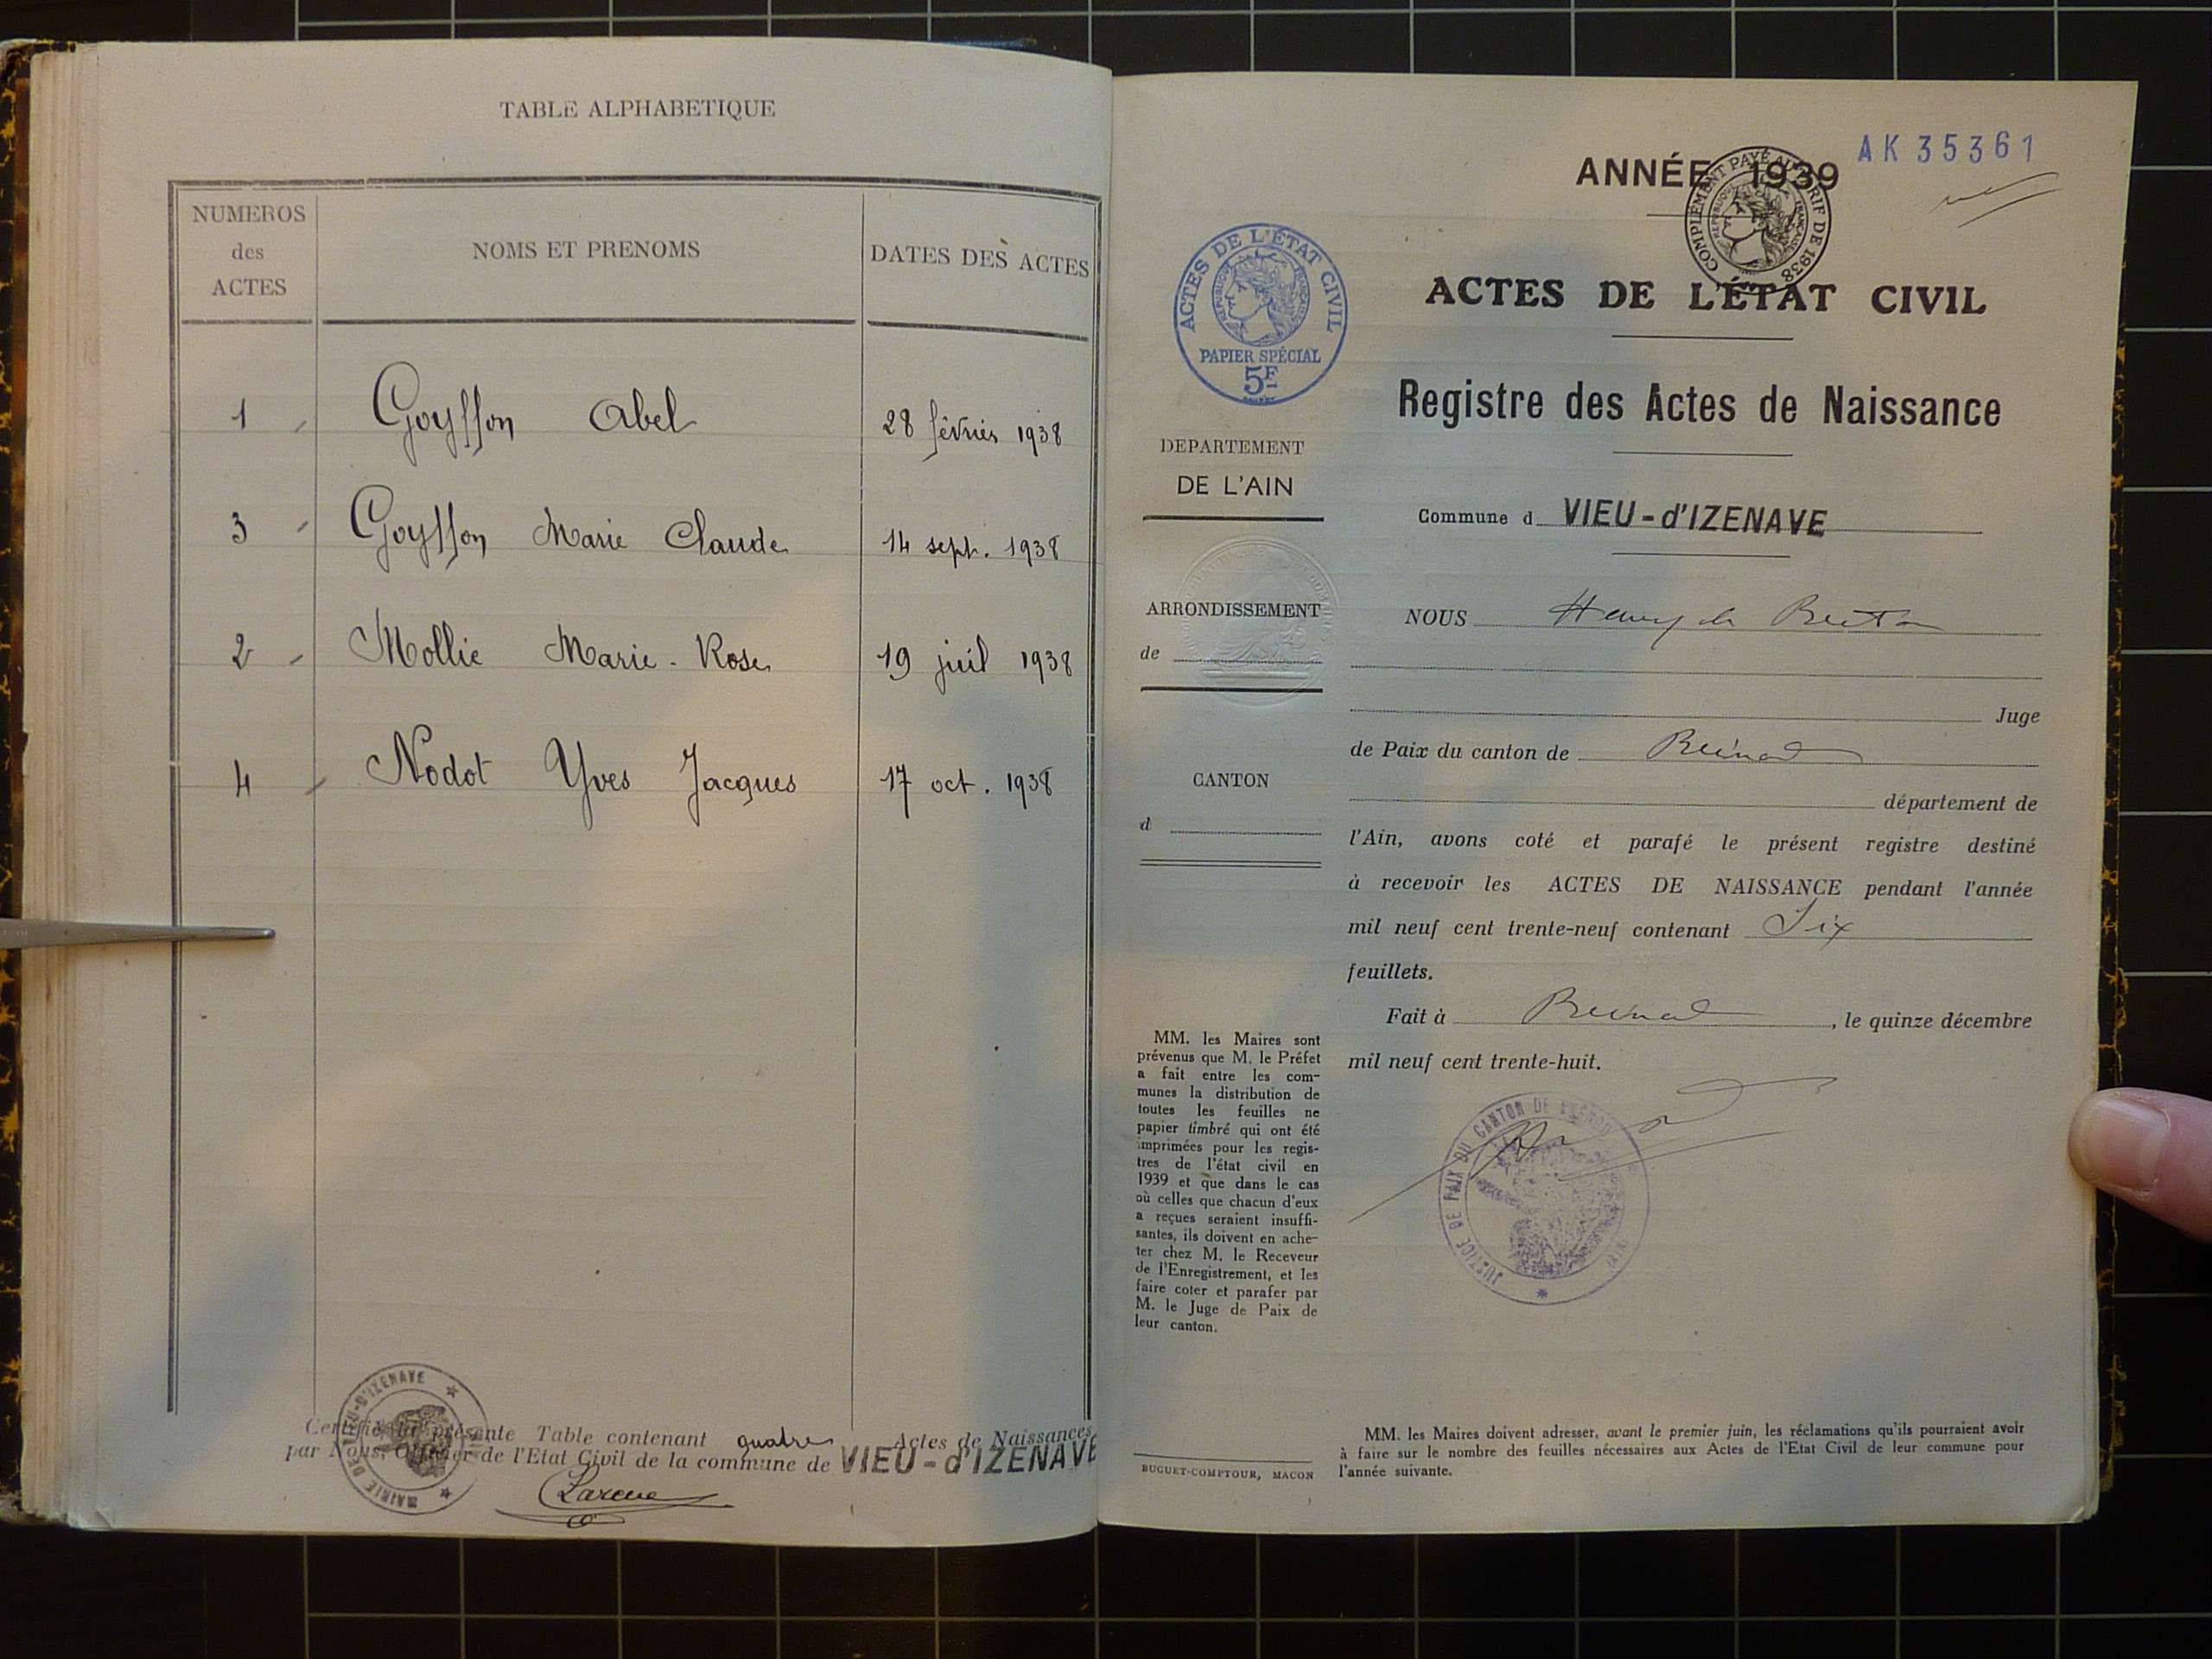 TABLE ALPHABETIQUE
NUMEROS
des
ACTES
NOMS ET PRENOMS
DATES DES ACTES
1 Goyffon Abel 28 février 1938
3 Goyffon Marie Claude 14 sept. 1938
2 Mollie Marie-Rose 19 juil 1938
4 Nodot Yves Jacques 17 oct. 1938
Certifié la présente Table contenant quatre Actes de Naissances
par Nous, Officier de l'Etat Civil de la commune de VIEU-d'IZENAVE
MAIRIE DE VIEU-D'IZENAVE
AK 35361
ANNÉE 1939
COMPLÉMENT PAYÉ AU TARIF DE 1938
RÉPUBLIQUE FRANÇAISE
ACTES DE L'ÉTAT CIVIL
RÉPUBLIQUE FRANÇAISE
PAPIER SPÉCIAL
5F
ACTES DE L'ÉTAT CIVIL
Registre des Actes de Naissance
DEPARTEMENT
DE L'AIN
Commune d VIEU-d'IZENAVE
ARRONDISSEMENT
de
CANTON
d
NOUS Henry
Juge
de Paix du canton de
département de
l'Ain, avons coté et parafé le présent registre destiné
à recevoir les ACTES DE NAISSANCE pendant l'année
mil neuf cent trente-neuf contenant Six
feuillets.
Fait à , le quinze décembre
mil neuf cent trente-huit.
JUSTICE DE PAIX DU CANTON DE
MM. les Maires sont
prévenus que M. le Préfet
a fait entre les com-
munes la distribution de
toutes les feuilles ne
papier timbré qui ont été
imprimées pour les regis-
tres de l'état civil en
1939 et que dans le cas
où celles que chacun d'eux
a reçues seraient insuffi-
santes, ils doivent en ache-
ter chez M. le Receveur
de l'Enregistrement, et les
faire coter et parafer par
M. le Juge de Paix de
leur canton.
BUGUET-COMPTOUR, MACON
MM. les Maires doivent adresser, avant le premier juin, les réclamations qu'ils pourraient avoir
à faire sur le nombre des feuilles nécessaires aux Actes de l'Etat Civil de leur commune pour
l'année suivante.